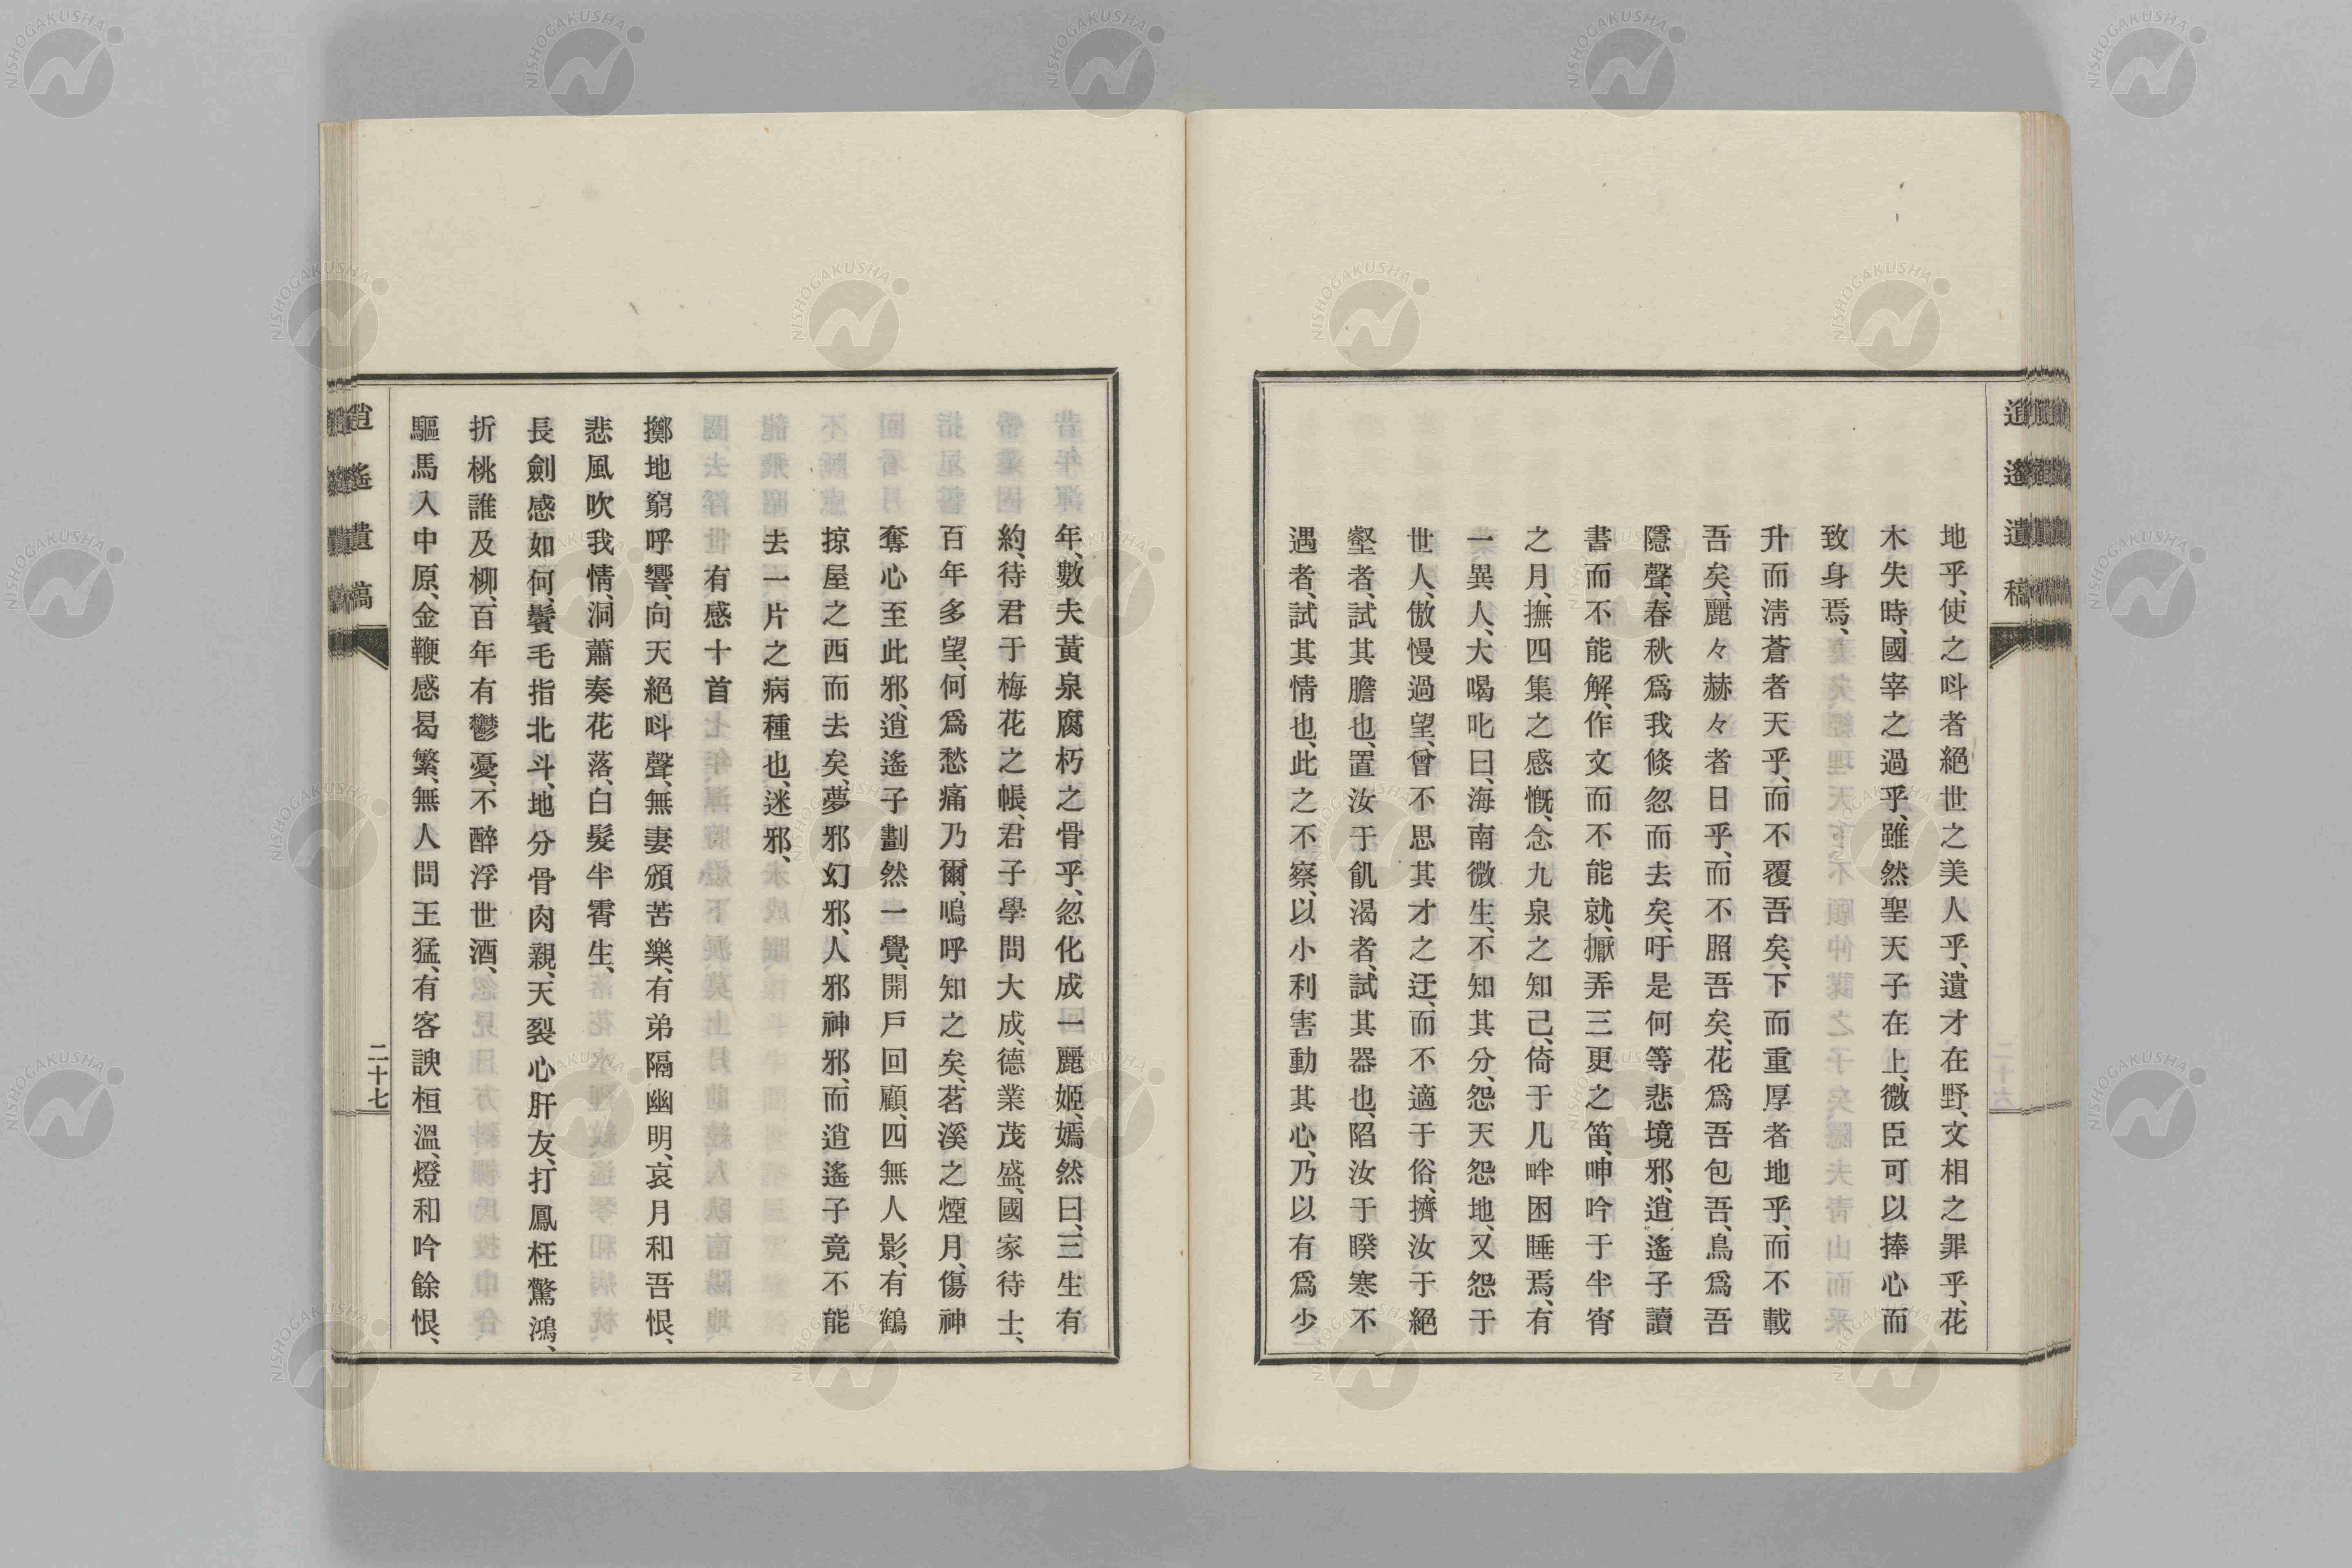 逍遙遺稿
地乎、使之呌者絕世之美人乎、遺才在野、文相之罪乎、花
木失時、國宰之過乎、雖然聖天子在上、微臣可以捧心而
致身焉、
升而淸蒼者天乎、而不覆吾矣、下而重厚者地乎、而不載
吾矣、麗々赫々者日乎、而不照吾矣、花爲吾包吾、鳥爲吾
隱聲、春秋爲我倐忽而去矣、吁是何等悲境邪、逍遙子讀
書而不能解、作文而不能就、擫弄三更之笛、呻吟于半宵
之月、撫四集之感慨、念九泉之知己、倚于几畔困睡焉、有
一異人、大喝叱曰、海南微生、不知其分、怨天怨地、又怨于
世人、傲慢過望、曾不思其才之迂、而不適于俗、擠汝于絕
壑者、試其膽也、置汝于飢渴者、試其器也、陷汝于暌寒不
遇者、試其情也、此之不察、以小利害動其心、乃以有爲少
年、數夫黃泉腐朽之骨乎、忽化成一麗姬、嫣然曰、三生有
約、待君于梅花之帳、君子學問大成、德業茂盛、國家待士、
百年多望、何爲愁痛乃爾、嗚呼知之矣、茗溪之煙月、傷神
奪心至此邪、逍遙子劃然一覺、開戶回顧、四無人影、有鶴
掠屋之西而去矣、夢邪幻邪、人邪神邪、而逍遙子竟不能
去一片之病種也、迷邪、
有感十首
擲地窮呼響、向天絕呌聲、無妻頒苦樂、有弟隔幽明、哀月和吾恨、
悲風吹我情、洞蕭奏花落、白髮半霄生、
長劍感如何、鬢毛指北斗、地分骨肉親、天裂心肝友、打鳳枉驚鴻、
折桃誰及柳、百年有鬱憂、不醉浮世酒、
驅馬入中原、金鞭感曷繁、無人問王猛、有客諛桓溫、燈和吟餘恨、
逍遙遺稿
二十七